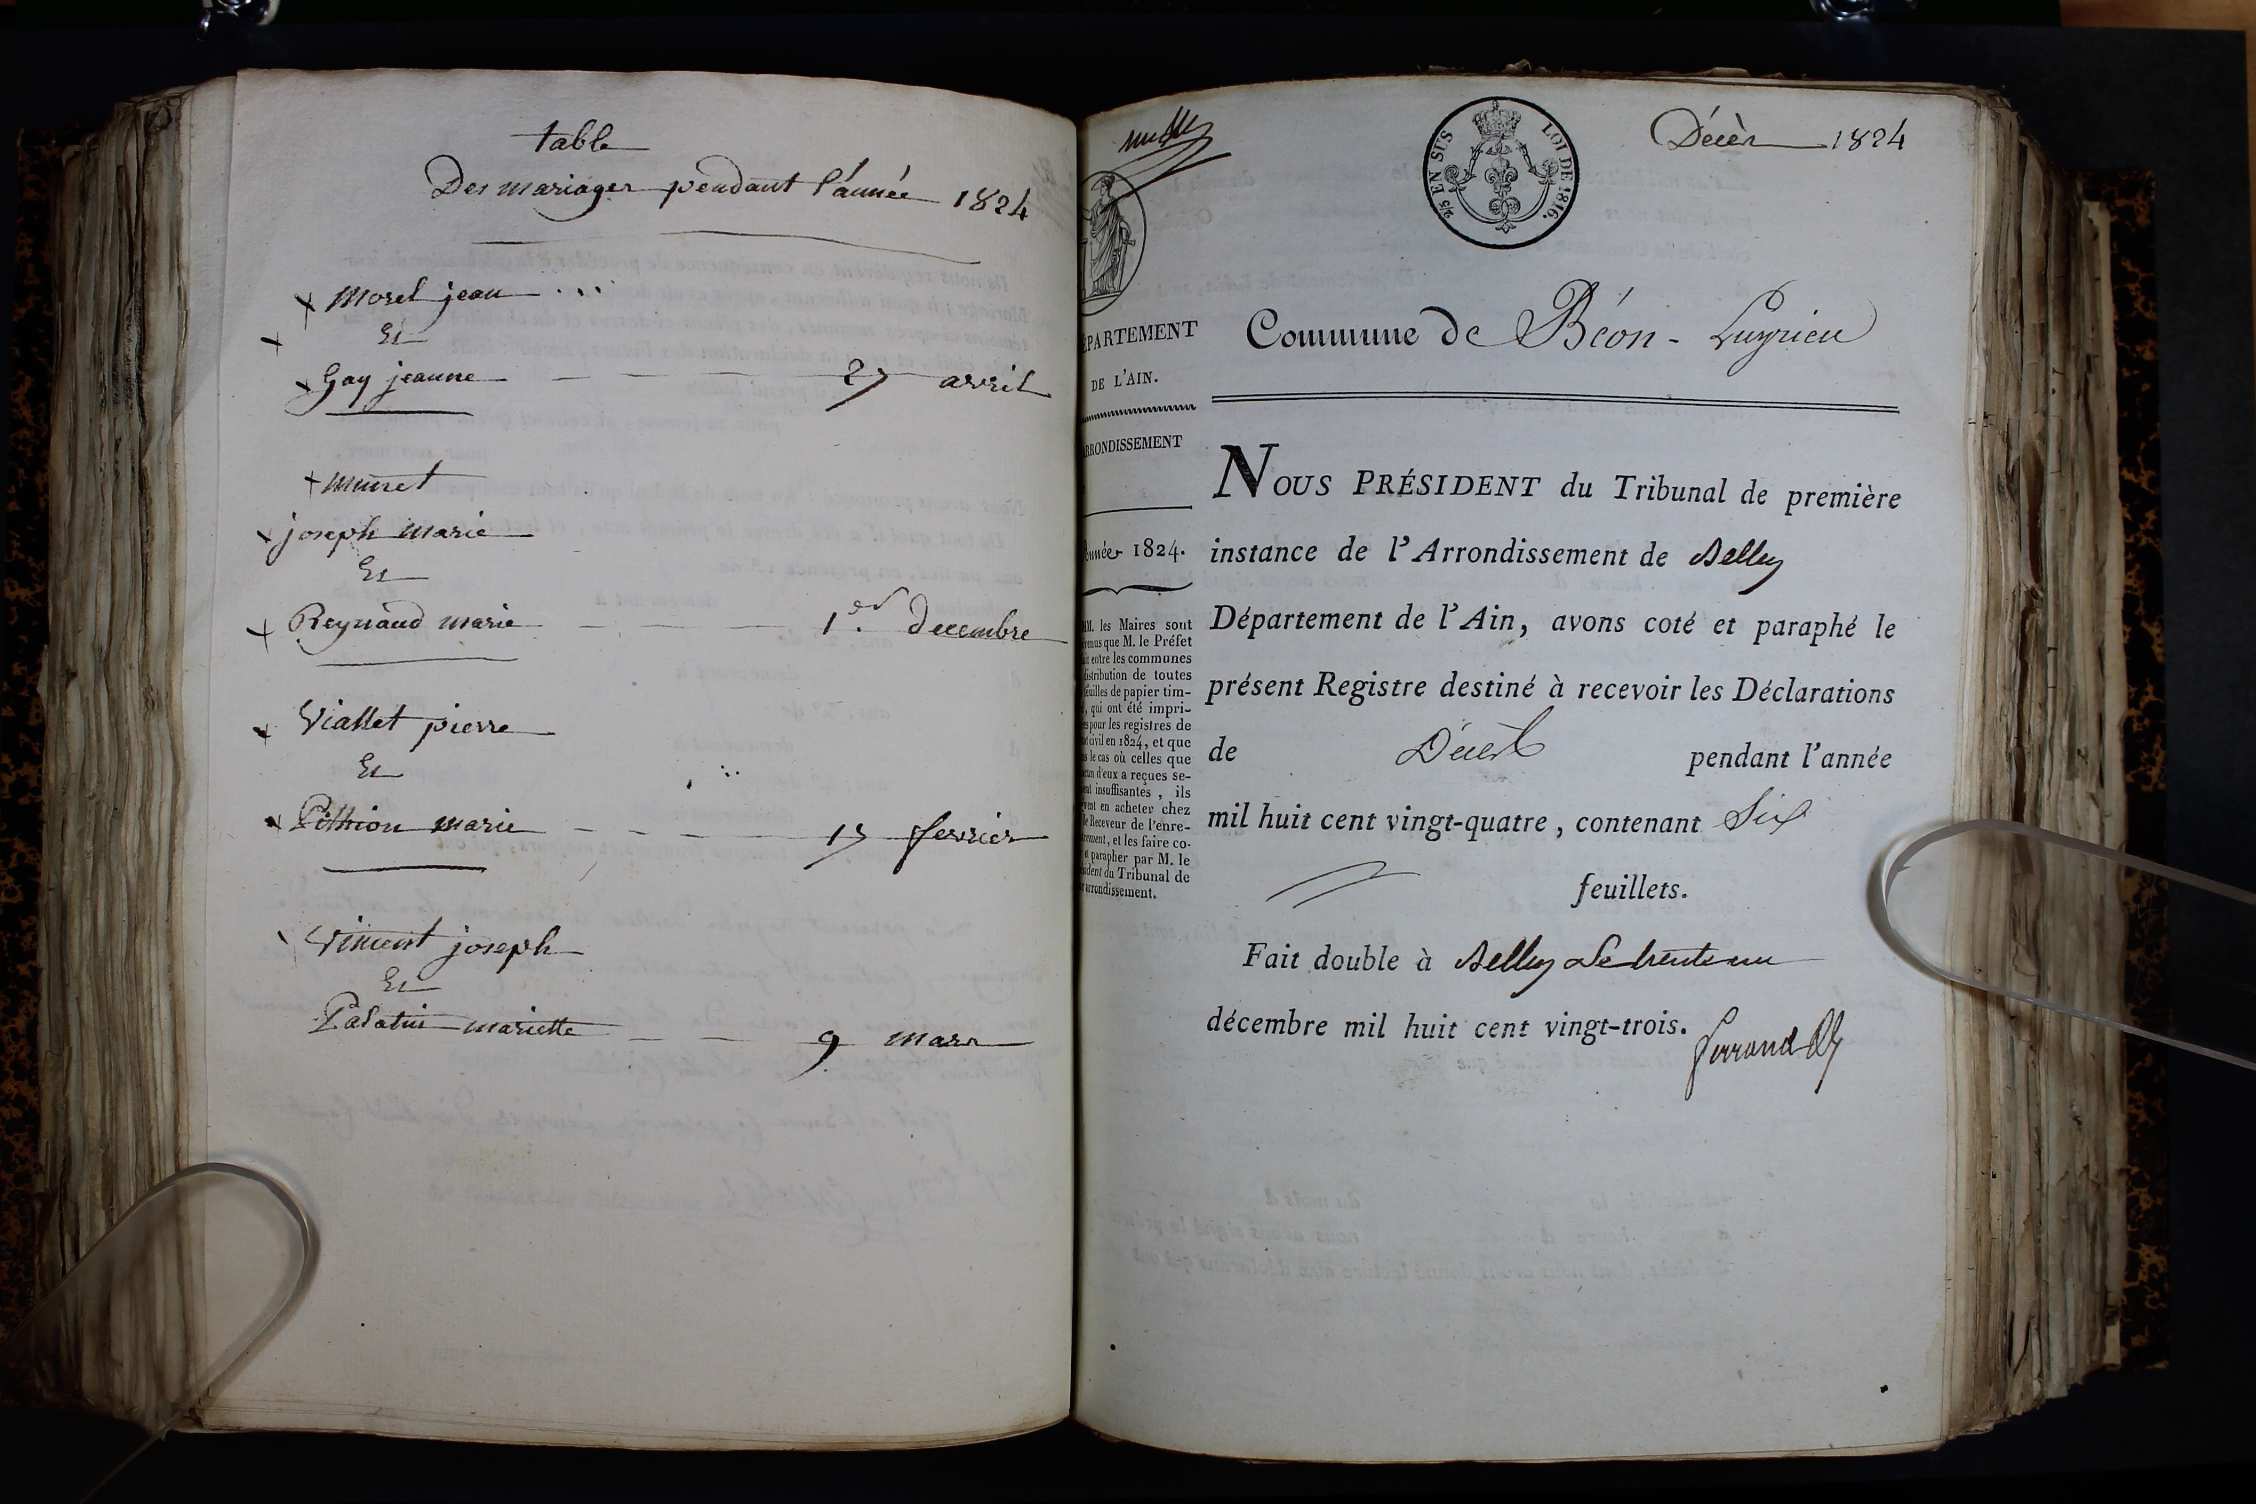 table
Des mariages pendant l'année 1824
Morel jean ...
Et
Gay jeanne 27 avril
muret
joseph marie
Et
Reynaud marie 1er decembre
Viallet pierre
Et
Pithion marie 17 fevrier
Vincent joseph
Et
Palatin mariette 9 mars
Décès 1824
2/5 EN SUS LOI DE 1816.
ÉPARTEMENT
DE L'AIN.
ARRONDISSEMENT
Année 1824.
MM. les Maires sont
venus que M. le Préfet
entre les communes
distribution de toutes
feuilles de papier tim-
, qui ont été impri-
pour les registres de
civil en 1824, et que
le cas où celles que
d'eux a reçues se-
insuffisantes, ils
en acheter chez
le Receveur de l'enre-
, et les faire co-
et parapher par M. le
Président du Tribunal de
arrondissement.
Commune de Béon-Luyrieu
NOUS PRÉSIDENT du Tribunal de première
instance de l'Arrondissement de Belley
Département de l'Ain, avons coté et paraphé le
présent Registre destiné à recevoir les Déclarations
de Décès pendant l'année
mil huit cent vingt-quatre, contenant Six
feuillets.
Fait double à Belley Le trente un
décembre mil huit cent vingt-trois.